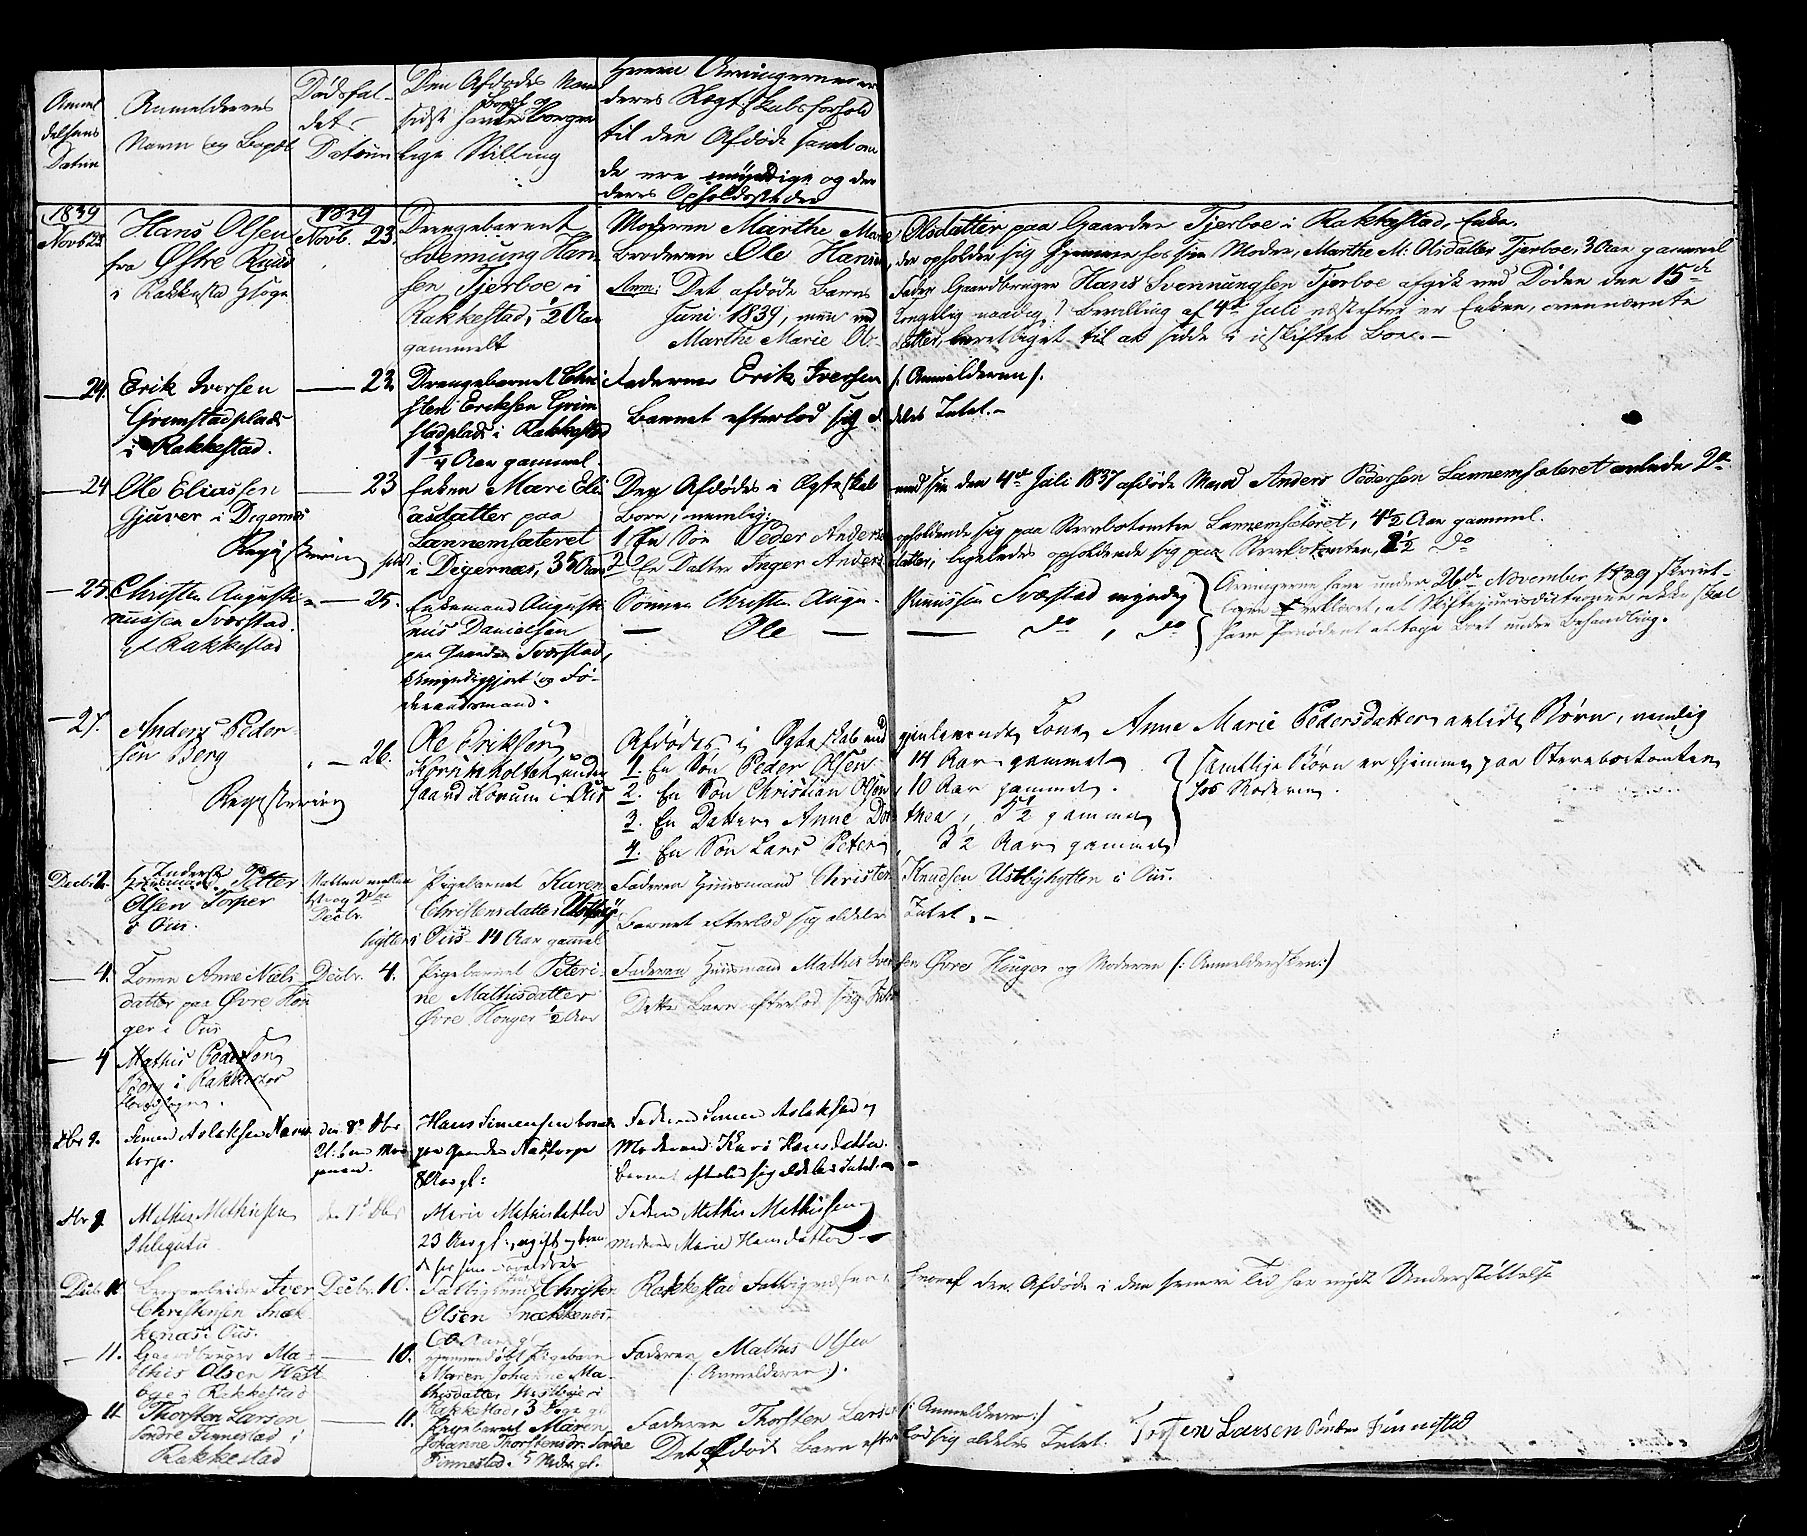 Anmel
delsens
Datum
Anmelderens
Navn og Bopæl
Dødsfal-
dets
Datum
Den Afdødes Navn
sidste Bopæl og
borger
lige Stilling
Hvem Arvingerne er
deres Slægtskabsforhold
til den Afdøde samt om
de ere myndige og de
deres Opholdssteder
1839
Novb 23
Hans Olsen
fra Østre Ruud
i Rakkestad Hsogn
1839
Novb. 23.
Drengebarnet
Svennung Han
sen Tjerboe i
Rakkestad, 1/2 Aar
gammelt
Moderen Marthe Marie Olsdatter paa Gaarden Tjerboe i Rakkestad, Enke.
Broderen Ole Hansen, der opholder sig hjemme hos sin Moder, Marthe M. Olsdatter Tjerboe, 3 Aar gammel
Anm: Det afdøde Barns Fader Gaardbruger Hans Svennungsen Tjerboe afgik ved Døden den 15de
Juni 1839, men ved kongelig naadig Bevilling af 4de Juli næstefter er Enken, ovennævnte
Marthe Marie Ols- datter, berettiget til at sidde i uskiftet Boe.-
— 24.
Erik Iversen
Grimstadplads
i Rakkestad.
— 23.
Drengebarnet Chri
sten Eriksen Grim
stadplads i Rakkestad
1 1/4 Aar gammel
Faderen Erik Iversen /: Anmelderen :/.
Barnet efterlod sig al deles Intet.-
— 24
Ole Eliassen
Gjuver i Digernæs
Registrering
— 23
Enken Mari Eli
asdatter paa
Lannemsæteret
i Digernæs, 35 Aar
Den Afdødes i Ægteskab med sin den 4de Juli 1837 afdøde Mand Anders Pedersen Lannemsæteret avlede 2de
Børn, nemlig:
1 En Søn Peder Anderse opholdende sig paa Stervbotomten Lannemsæteret, 4 1/2 Aar gammel.
2 En Datter Inger Anders datter, ligeledes opholdende sig paa Stervbotomten, 2 1/2 do
— 25.
Christen Augusti-
nussen Sværstad
i Rakkestad
— 25.
Enkemand Augusti
nus Danielsen
paa Gaarden Sværstad,
umyndiggjort og Fø-
deraadsmand.
Sønnen Christen Augu- stinussen Sværstad myndig
— Ole — — do, do
Arvingerne have under 26de November 1839 skrivt-
ligen erklæret, at Skiftejurisdictionen ikke skal
have fornødent at tage Boet under Behandling.
— 27.
Anders Peder-
sen Berg
Registrering
— 26.
Ole Eriksen
Korumholtet under
Gaard Korum i Øus
Afdødes i Ægteskab med gjenlevende Kone Anne Marie Pedersdatter avlede Børn, nemlig
1. En Søn Peder Olsen 14 Aar gammel
2. En Søn Christian Olsen, 10 Aar gammel.
3. En Datter Anne Dor thea, 5 1/2 gammel
4. En Søn Lars Peter, 3 1/2 Aar gammel
Samtlige Børn er hjemme paa Stervboetomten
hos Moderen.
Decbr 2.
Anders Petter
Olsen Torper
i Øus.
Natten mellem
1st og 2den
Decbr.
Pigebarnet Karen
Christensdatter Ustbye
hytten i Øus 14 Aar gammel
Faderen Huusmand Christen Knudsen Ustbyhytten i Øus.
Barnet efterlod sig aldeles Intet.-
— 4.
Konen Anne Niels
datter paa Øvre Hon
ger i Øus
Decbr. 4.
Pigebarnet Peteri-
ne Mathisdatter
Øvre Honger 1/2 Aar
Faderen Huusmand Mathis Iver sen Øvre Honger og Moderen (: Anmeldersken:)
Dette Barn efterlod sig Intet
— 4
Mathis Pedersen
Berg i Rakkestad
Hovedsogn.
Dbr 9.
Simen Aslaksen Nas
torp.
den 8de Dbr
Kl. 6 om Mor
genen.
Hans Simensen
paa Gaarden Nastorp
8 Aar gl:
Faderen Simen Aslaksen og
Moderen: Kari Hansdatter.
barnet efterlod sig aldeles Intet.-
Dbr 9.
Mathis Mathisen
den 1ste Dbr
Marie Mathisdatter
23 Aar gl:, ugift og
hos sine Forældre
Faderen Mathis Mathisen
Moderen Marie Hansdatter
Decbr. 11
Iver
Christensen Snæk-
kenæs i Øus.
Decbr. 10.
Fattiglem Christen
Olsen Snækkenæs,
60 Aar gl
Rakkestad Fattigvæsen, hvoraf den Afdøde i den senere Tid har nydt Understøttelse
— 11.
Gaardbruger Ma-
this Olsen Wast
bye i Rakkestad
— 10.
hjemmedøbt Pigebarn
Maren Johanne Ma-
thisdatter Westbye i
Rakkestad, 3 Dage gl
Faderen Mathis Olsen
(: Anmelderen :).
— 11
Thorsten Larsen
Søndre Finnestad i
Rakkestad
— 11.
Pigebarnet Maren
Johanne Thorstensdr. Søndre
Finnestad. 5 Uger gl.
Faderen Thorsten Larsen (: Anmelderen:)
Det afdøde Barn efter lod sig aldeles Intet. Torsten Larsen Sønder Finnestad